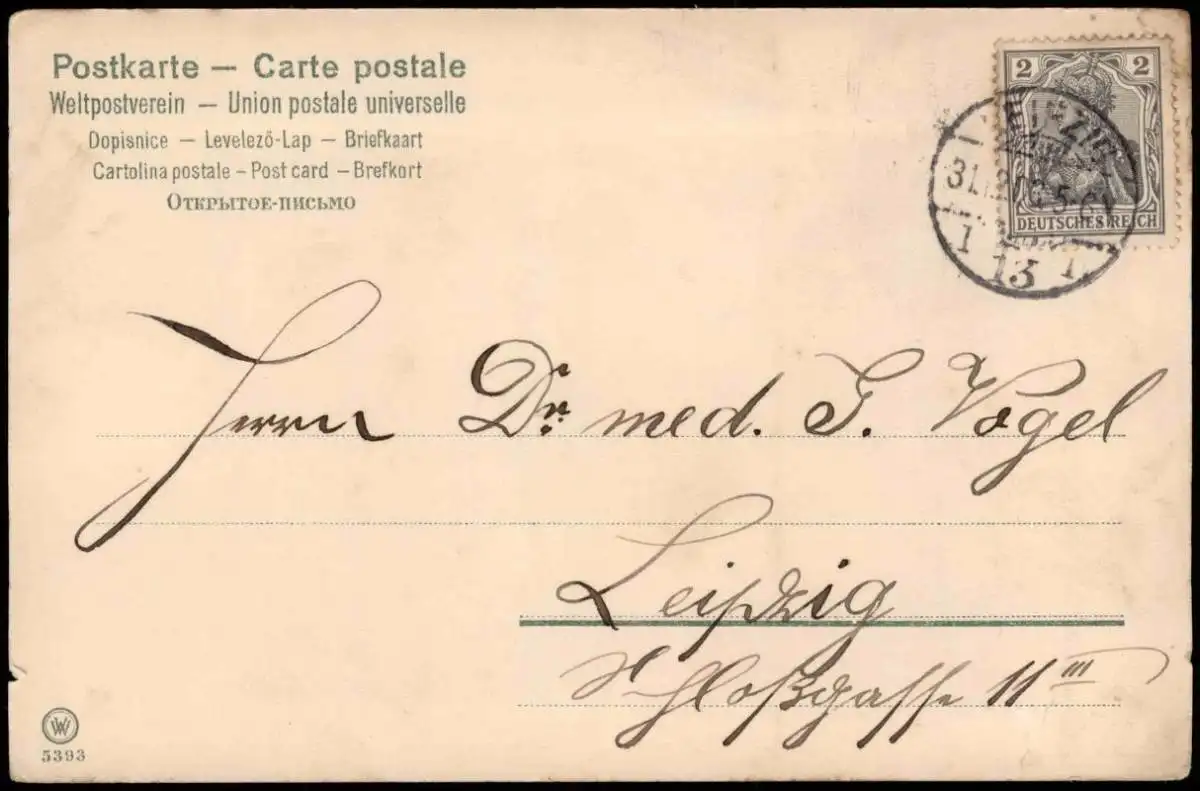 Postkarte — Carte postale
Weltpostverein — Union postale universelle
Dopisnice — Levelező-Lap — Briefkaart
Cartolina postale – Post card – Brefkort
Открытое-письмо
2 2
DEUTSCHES REICH
LEIPZIG
31.12. 5-6
13
Herrn Dr. med. J. Vogel
Leipzig
Schloßgasse 11 III
W
5393